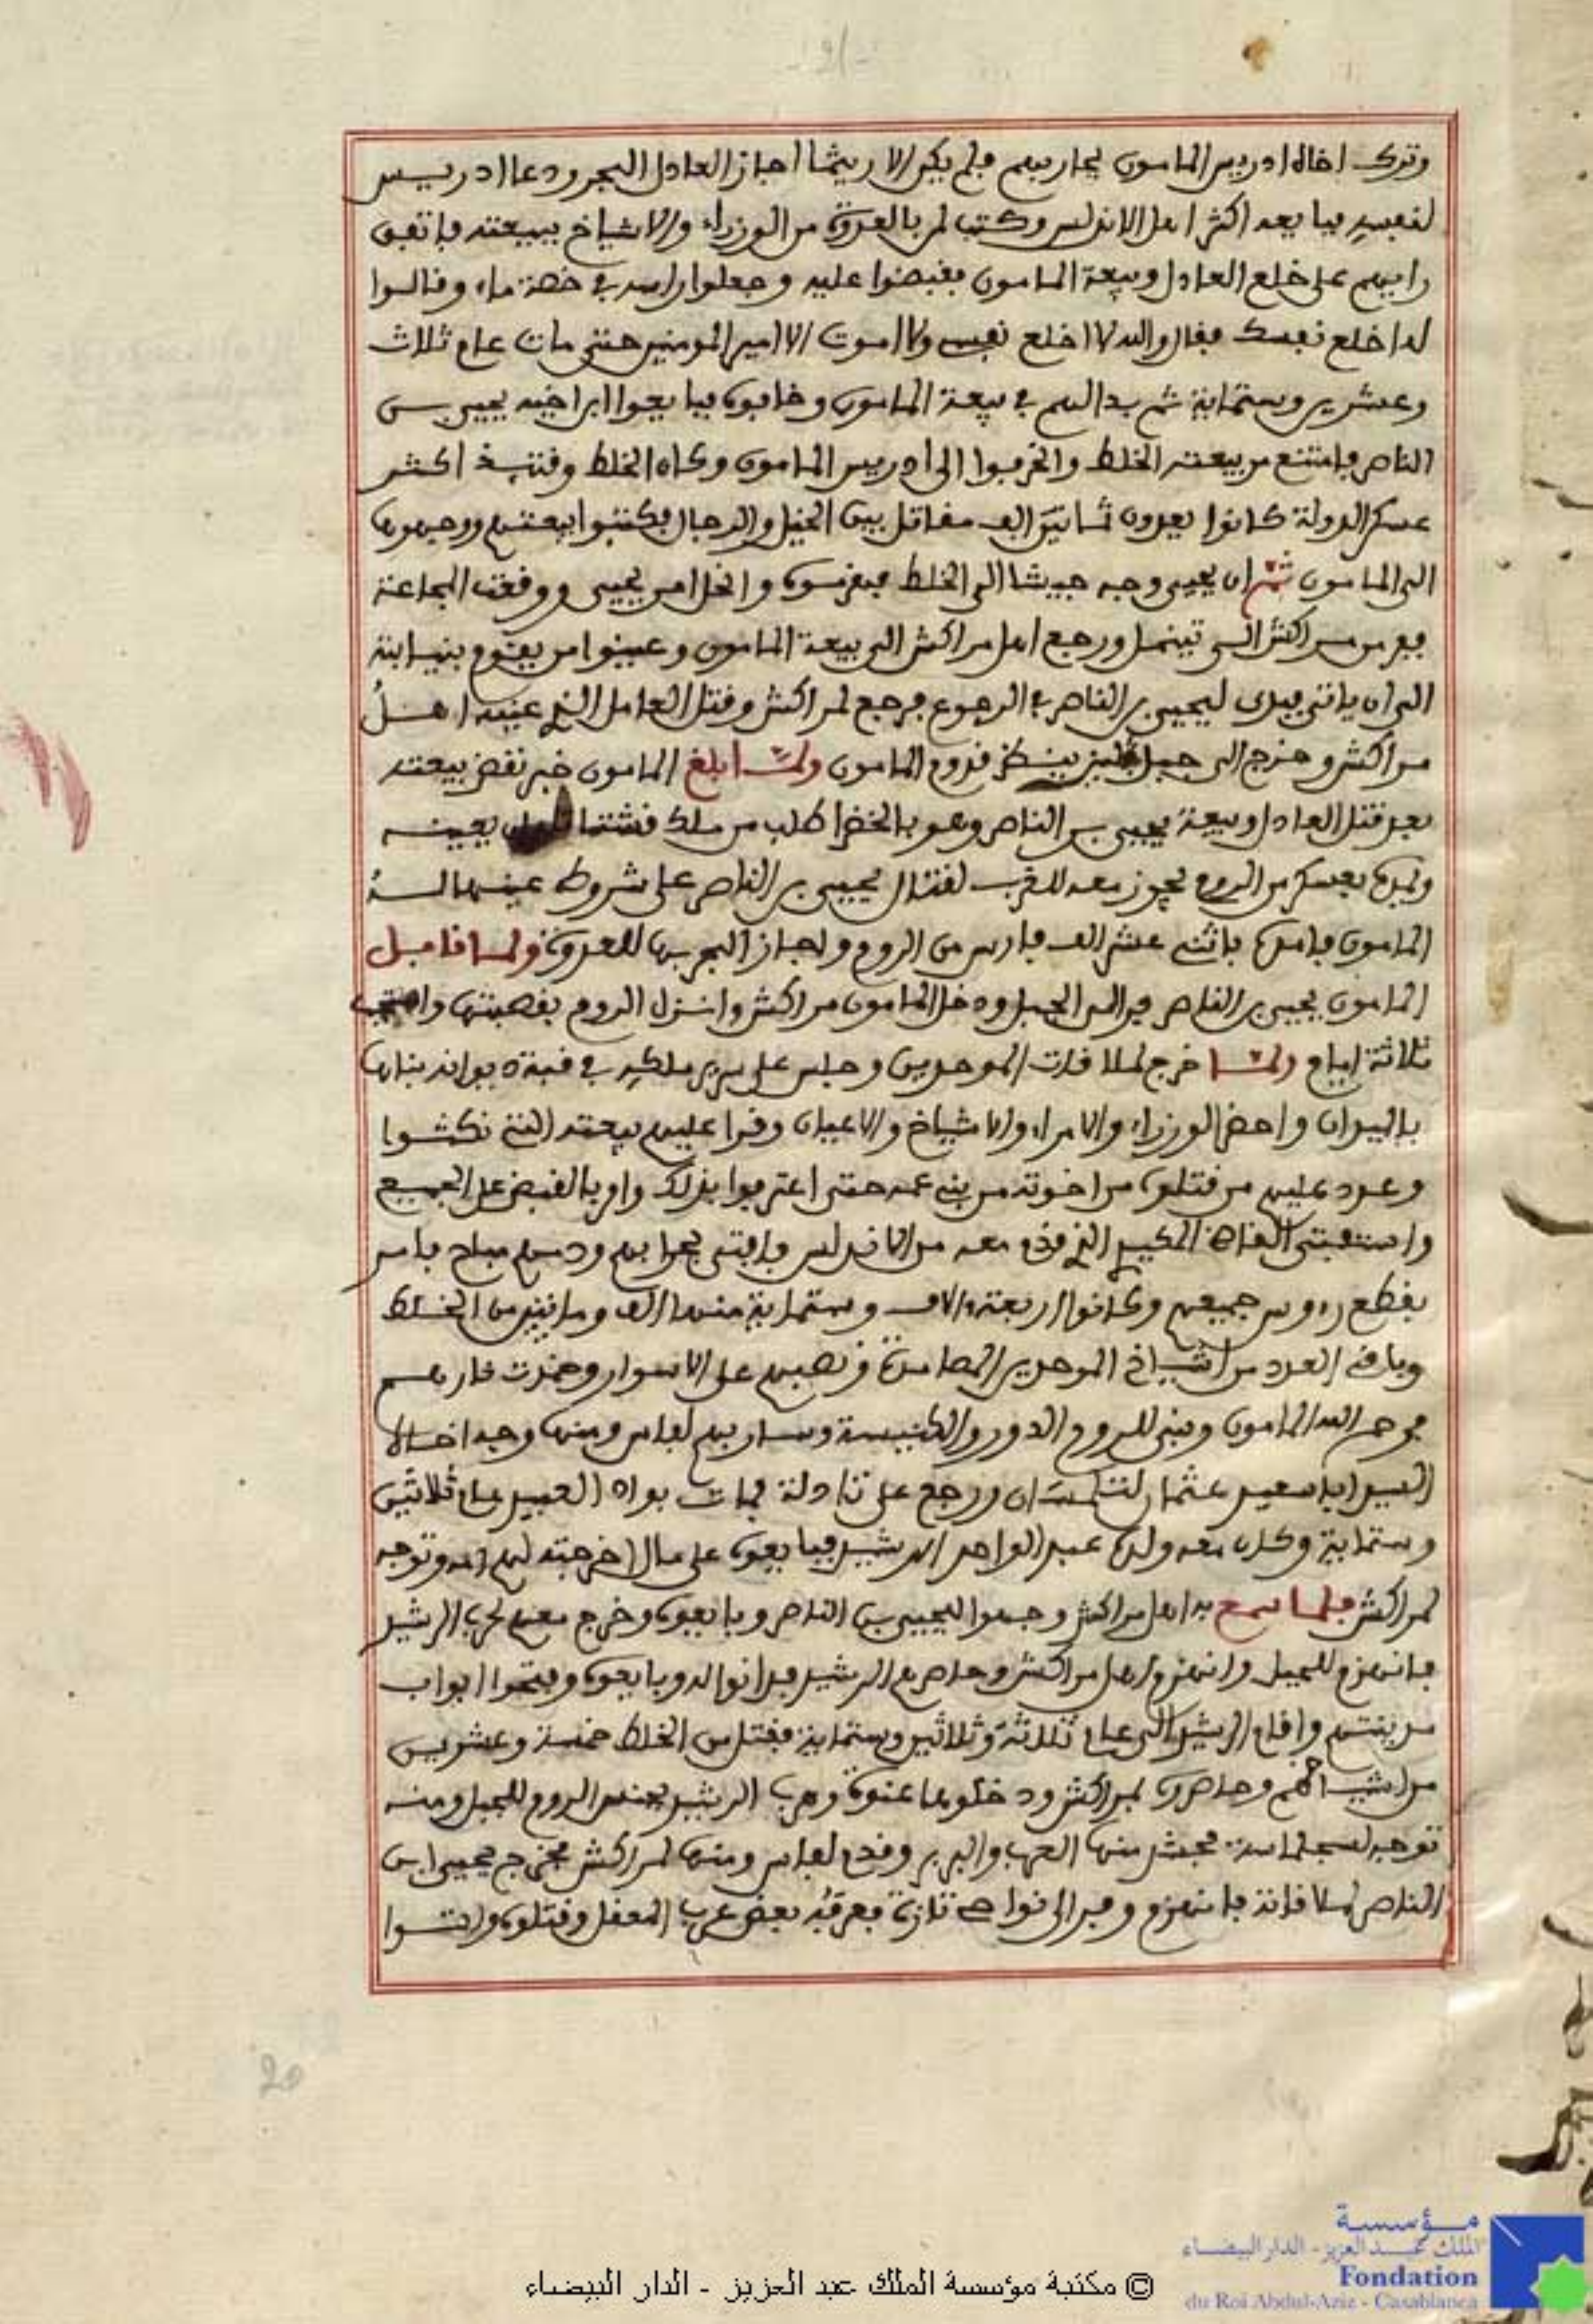 وترك اخاه ادريس المامون يحاربهم فلم يكن الا ريثما اجاز العادل البحر ودعا ادريس
لنفسه فبايعه اكثر اهل الاندلس وكتب لمن بالعدوة من الوزراء والاشياخ ببيعته فاتفق
رايهم على خلع العادل وبيعة المامون فقبضوا عليه وجعلوا راسه في خصة ماء وقالوا
له اخلع نفسك فقال والله لا اخلع نفسي ولا اموت الا امير المومنين حتى مات عام ثلاث
وعشرين وستماية ثم بدا لهم في بيعة المامون وخافوه فبايعوا ابن اخيه يحيى بن
الناصر فامتنع من بيعته الخلط وانحرفوا الى ادريس المامون وكان الخلط وقتئذ اكثر
عسكر الدولة كانوا يعدون ثمانين الف مقاتل بين الخيل والرجال فكتبوا بيعتهم ووجهوها
الى المامون ثم ان يحيى وجه جيشا الى الخلط فهزموه وانحل امر يحيى ووقعت المجاعة
ففر من مراكش الى تينمل ورجع اهل مراكش الى بيعة المامون وعينوا من يقوم بنيابته
الى ان ياتي فبدى ليحيى بن الناصر في الرجوع فرجع لمراكش وقتل العامل الذي عينه اهل
مراكش وخرج الى جبل جليز ينتظر قدوم المامون ولما بلغ المامون خبر نقض بيعته
بعد قتل العادل وبيعة يحيى بن الناصر وهو بالخضرا طلب من ملك قشتالة ان يعينه
ويمده بعسكر من الروم يجوز معه للغرب لقتال يحيى بن الناصر على شروط عينها له
المامون فامده باثني عشر الف فارس من الروم واجاز البحر بها للعدوة ولما قابل
المامون يحيى بن الناصر فر الى الجبل ودخل المامون مراكش وانزل الروم بقصبتها واحتجب
ثلاثة ايام ولما خرج لملاقات الموحدين وجلس على سرير ملكه في قبة ديوانه بناها
بالديوان واحضر الوزراء والامراء والاشياخ والاعيان وقرا عليهم بيعته التي نكثوا
وعدد عليهم من قتلوه من اخوته من بني عمه حتى اعترفوا بذلك وامر بالقبض على الجميع
واستفتى القاضي المكيدي الذي قدم معه من الاندلس فافتى بجوابهم ودمهم مباح فامر
بقطع رءوس جميعهم وكانوا اربعة ءالاف وستماية منها الف ومايتين من الخلط
وباقي العدد من اشياخ الموحدين المصامدة ونصبهم على الاسوار وخمدت نارهم
فرحم الله المامون وبنى للروم الدور والكنيسة وسار بهم لفاس ومنها وجه اخاه
السيد ابا سعيد عثمان لتلمسان ورجع على تادلة فمات بواد العبيد عام ثلاثين
وستماية وكان معه ولده عبد الواحد الرشيد فبايعوه على مال اخرجته لهم امه وتوجه
لمراكش فلما سمع به اهل مراكش وجهوا ليحيى بن الناصر وبايعوه وخرج معهم لحرب الرشيد
فانهزم للجبل وانهزم اهل مراكش وحاصرهم الرشيد فدانوا له وبايعوه وفتحوا ابواب
مدينتهم واقام الرشيد الى عام ثلاثة وثلاثين وستماية فقتل من الخلط خمسة وعشرين
من اشياخهم وحاصروه بمراكش ودخلوها عنوة وهرب الرشيد بجنده الروم للجبل ومنه
توجه لسجلماسة فجيش منها العرب والبربر وقدم لفاس ومنها لمراكش فخرج يحيى ابن
الناصر لملاقاته فانهزم وفر الى نواحي تازة فعرفه بعض عرب المعقل وقتلوه واتوا
20
مؤسسة
الملك عبد العزيز - الدار البيضاء
Fondation
du Roi Abdul-Aziz - Casablanca
© مكتبة مؤسسة الملك عبد العزيز - الدار البيضاء